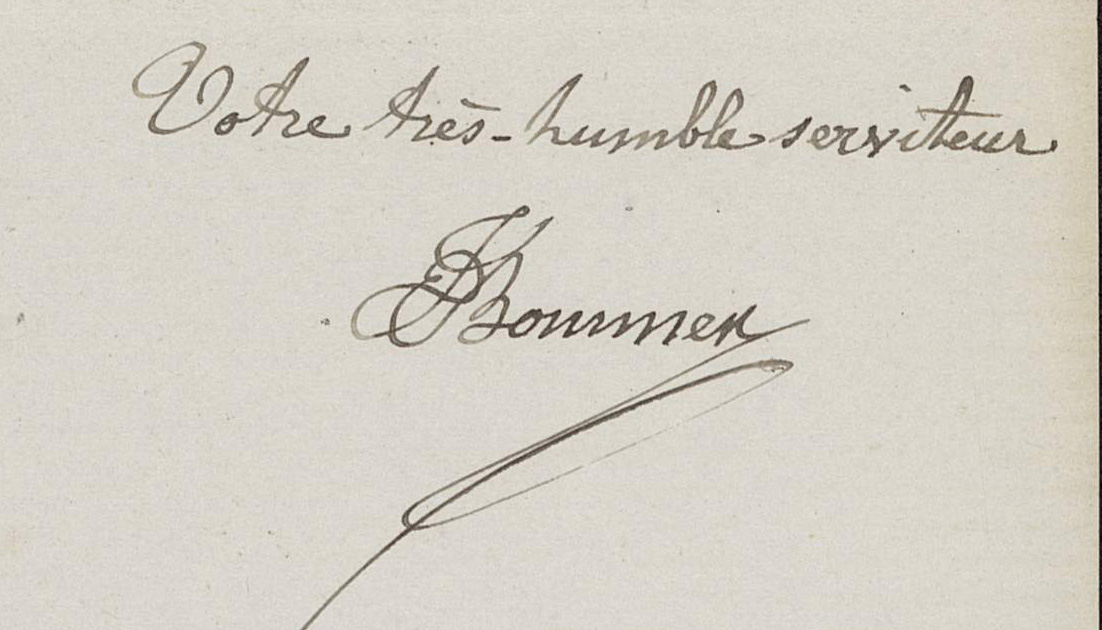 Votre très-humble serviteur
Bommer